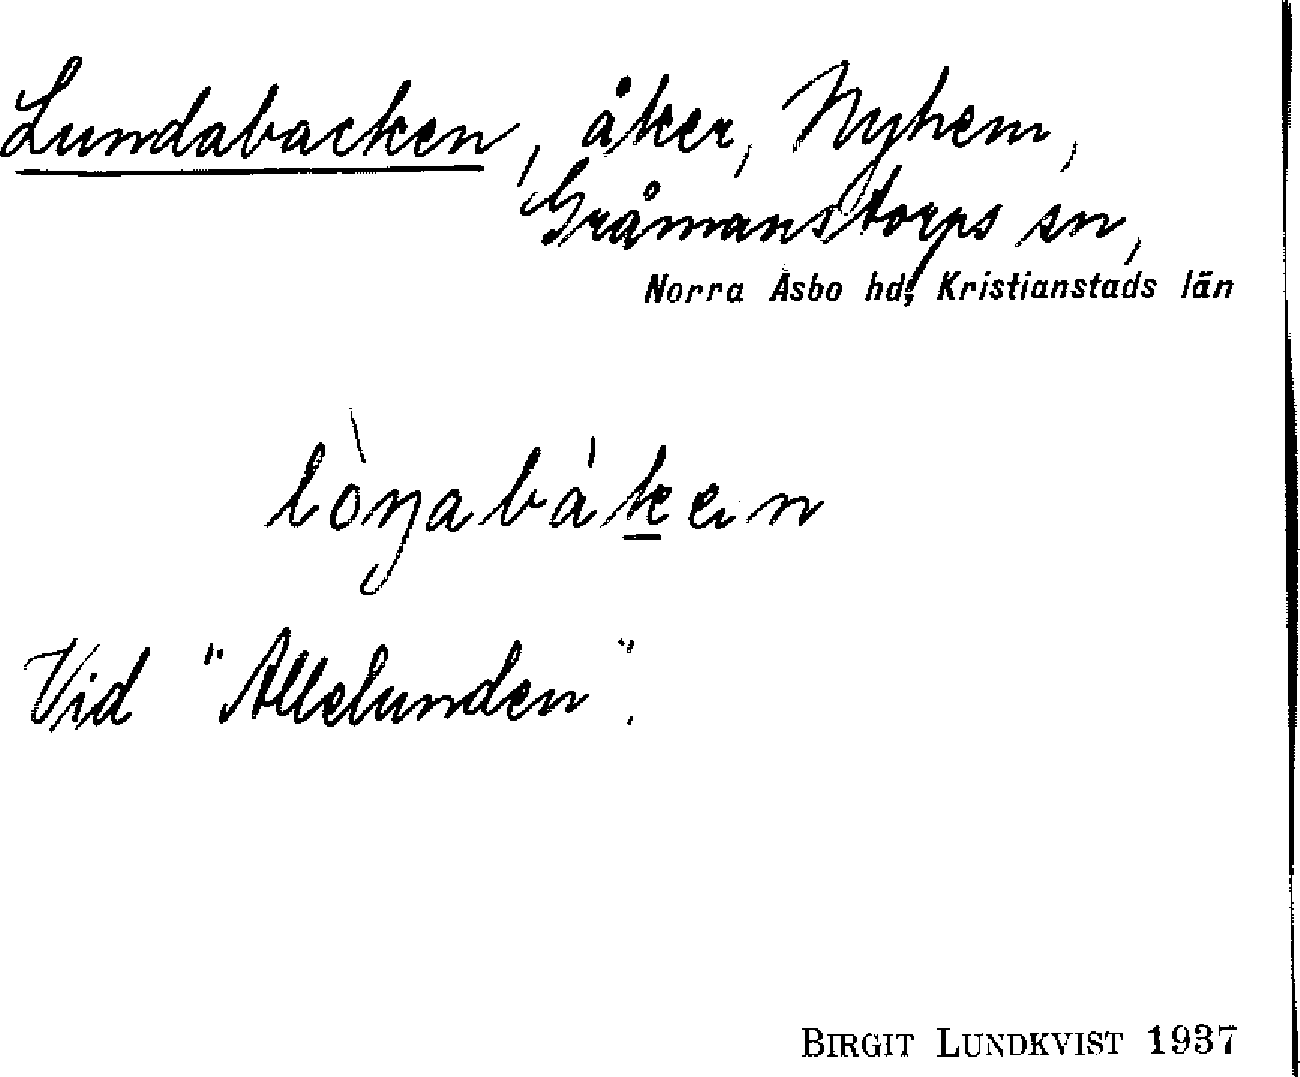 Lundabacken, åker, Nyhem,
Gråmanstorps sn,
Norra Åsbo hd, Kristianstads län
lòŋabàken
Vid "Allelunden".
BIRGIT LUNDKVIST 1937